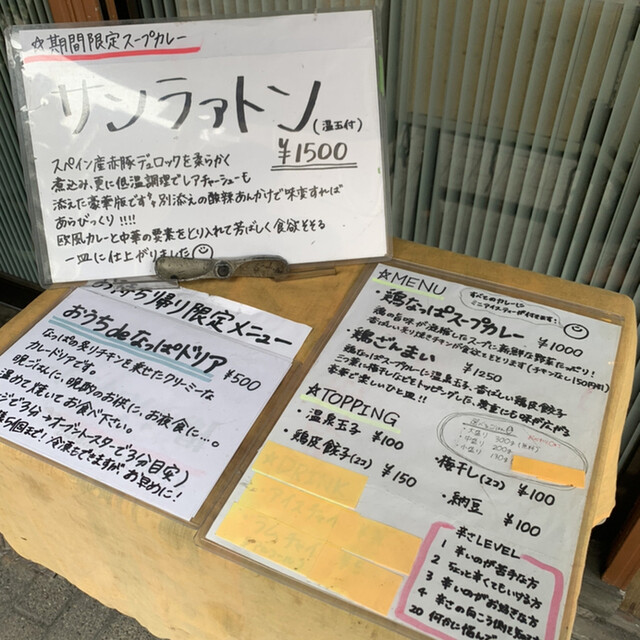 ☆期間限定スープカレー
サンラァトン
(温玉付)
¥1500
スペイン産赤豚デュロックを柔らかく
煮込み、更に低温調理でレアチャーシューも
添えた豪華版です。別添えの酸辣あんかけで味変すれば
あらびっくり!!!!
欧風カレーと中華の要素をとり入れて芳ばしく食欲そそる
一皿に仕上がりました
お持ち帰り限定メニュー
おうちdeなっぱドリア
¥500
なっぱの炙りチキンを乗せたクリーミーな
カレードリアです。
晩ごはんに、晩酌のお供に、お夜食に…。
温めて焼いてお食べ下さい。
オーブントースターで3分目安)
5個まで!冷凍もできますが、お早めに!
☆MENU
すべてのカレーに
ミニアイスティーが付きます!
・鶏なっぱスープカレー
¥1000
鶏の旨味が凝縮したスープに新鮮な野菜たっぷり!
香ばしい炙り焼きチキンが食欲をそそります(チキンなし150円引)
・鶏ざんまい
¥1250
鶏なっぱスープカレーに温泉玉子、香ばしい鶏皮餃子
☆TOPPING
・温泉玉子 ¥100
・鶏皮餃子(2コ) ¥150
・梅干し(2コ) ¥100
・納豆 ¥100
・大盛り 300g
・中盛り 200g
・小盛り 130g
DRINK
アイスチャイ
辛さLEVEL
1 辛いのが苦手な方
2 ちょっと辛くてもいける方
3 辛いのがお好きな方
4 辛さの向こう側
20